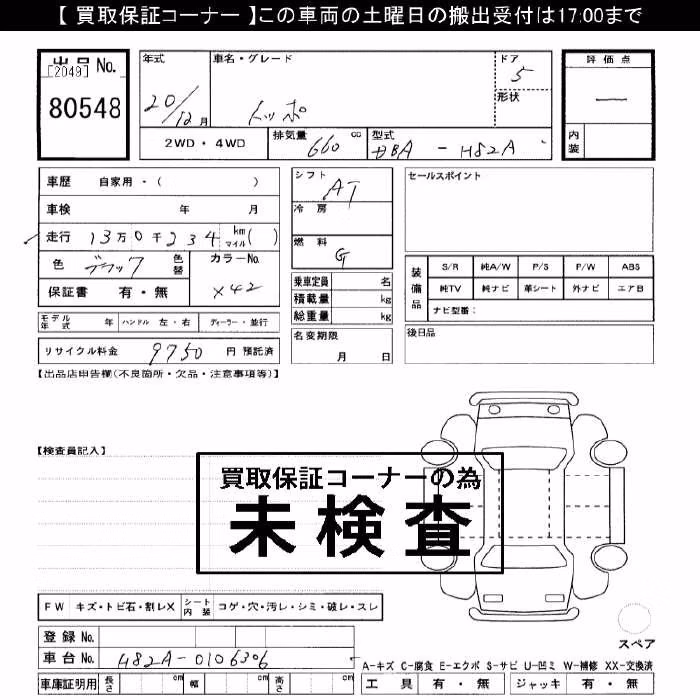 【 買取保証コーナー 】この車両の土曜日の搬出受付は17:00まで
出品 No.
[2049]
80548
年式
20/12月
車名・グレード
トッポ
ドア
5
形状
評価点
ー
内装
2WD・4WD
排気量 660 cc
型式 DBA - H82A
車歴 自家用・( )
車検 年 月
走行 13万0千234 km マイル ( )
色 ブラック 色替
カラーNo. X42
保証書 有・無
モデル年式 年 ハンドル 左・右 ディーラー・並行
リサイクル料金 9750 円 預託済
シフト AT
冷房
燃料 G
乗車定員 名
積載量 kg
総重量 kg
名変期限
月 日
セールスポイント
装備品
S/R 純A/W P/S P/W ABS
純TV 純ナビ 革シート 外ナビ エアB
ナビ型番:
後日品
【出品店申告欄(不良箇所・欠品・注意事項等)】
【検査員記入】
買取保証コーナーの為
未検査
FW キズ・トビ石・割レX シート内装 コゲ・穴・汚レ・シミ・破レ・スレ
登録 No.
車台 No. H82A-0106306
車庫証明用 長さ cm 幅 cm 高さ cm
スペア
A-キズ C-腐食 E-エクボ S-サビ U-凹ミ W-補修 XX-交換済
工具 有・無 ジャッキ 有・無